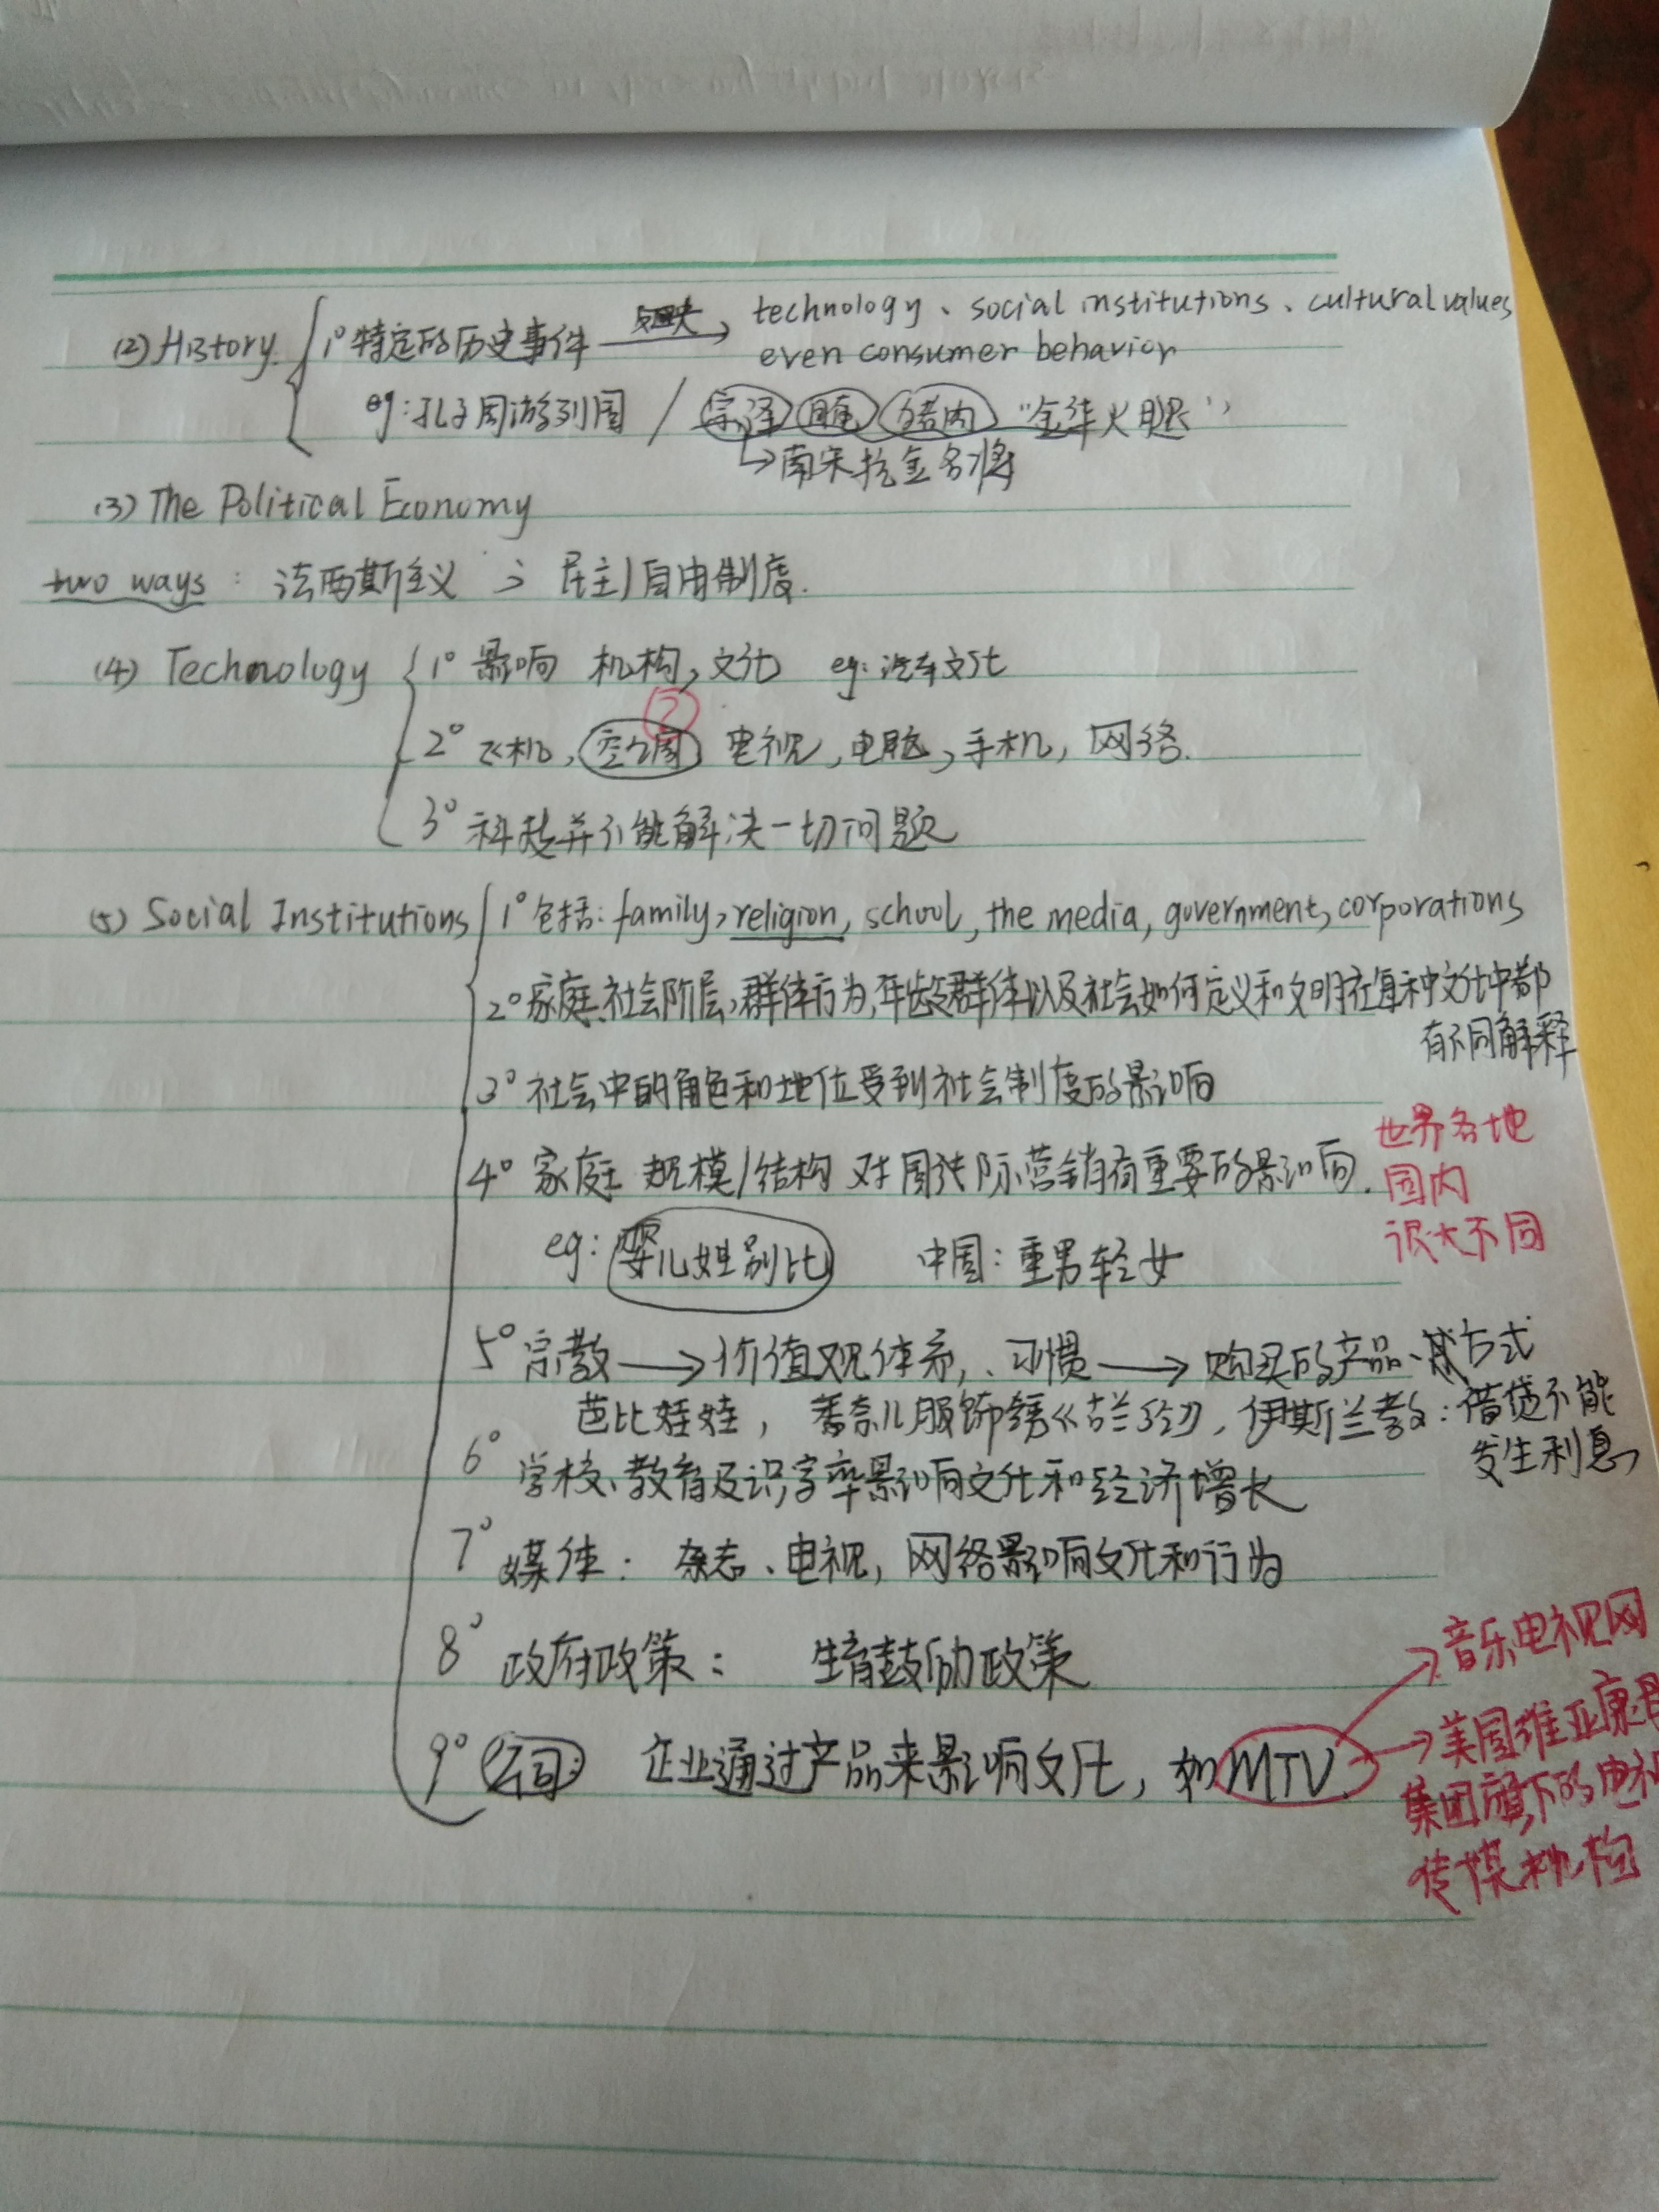 (2) History. 1° 特定的历史事件 → technology、social institutions、cultural values
even consumer behavior
eg:孔子周游列国 / 宗泽 腌 猪肉 "金华火腿"
↳南宋抗金名将
(3) The Political Economy
two ways: 法西斯主义 ; 民主/自由制度.
(4) Technology 1° 影响 机构,文化 eg:汽车文化
?
2° 飞机,空调 电视,电脑,手机,网络.
3° 科技并不能解决一切问题
(5) Social Institutions 1° 包括: family, religion, school, the media, government, corporations
2° 家庭、社会阶层,群体行为,年龄群体以及社会如何定义和文明在每种文化中都
有不同解释
3° 社会中的角色和地位受到社会制度的影响
4° 家庭 规模/结构 对国际营销有重要的影响. 世界各地
国内
很大不同
eg: 婴儿姓别比 中国:重男轻女
5° 宗教→价值观体系,、习惯→购买的产品、方式
芭比娃娃, 香奈儿服饰绣《古兰经》, 伊斯兰教:借贷不能
发生利息
6° 学校、教育及识字率影响文化和经济增长
7° 媒体: 杂志、电视,网络影响文化和行为
8° 政府政策: 生育鼓励政策
9° 公司: 企业通过产品来影响文化,如MTV.
→音乐电视网
→美国维亚康母
集团旗下的电视
传媒机构